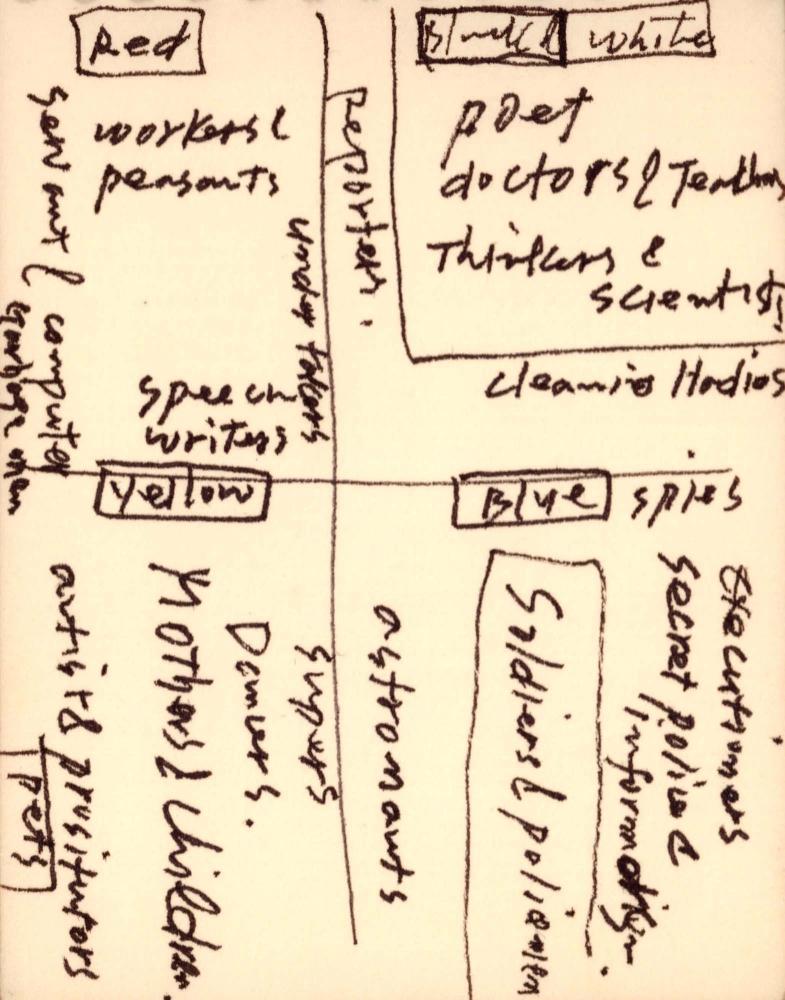 Red
workers &
peasants
servant & computer
garbage men
speech
writers
undertakers
reporters.
Black & white
poet
doctors & Teachers
Thinkers &
scientists
cleaning
Yellow
artist &
pets
Mothers & children
Dancers.
singers
astronauts
Blue
spies
Soldiers & policemen
secret police &
Executioners